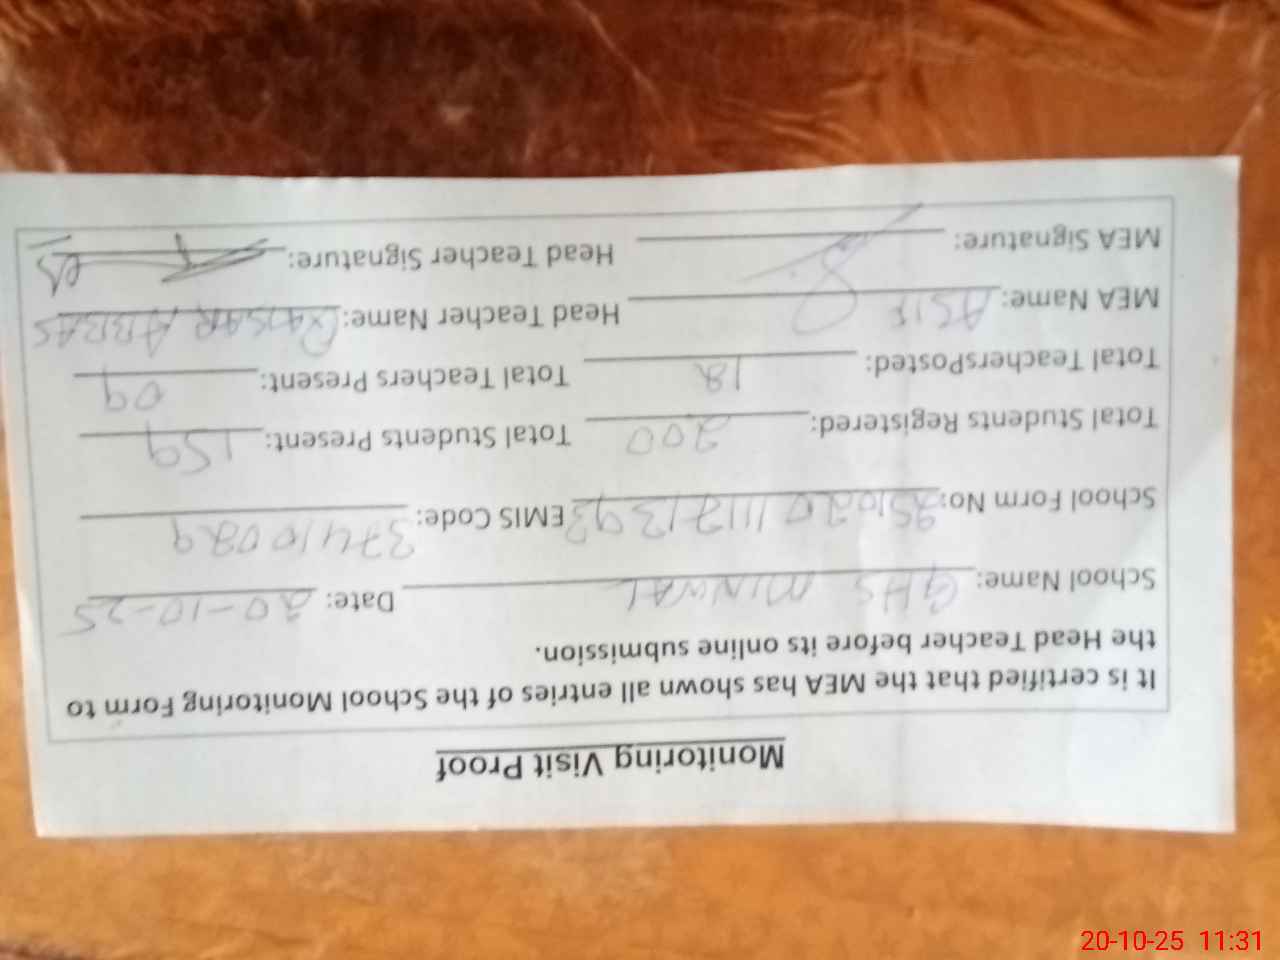 Monitoring Visit Proof
It is certified that the MEA has shown all entries of the School Monitoring Form to
the Head Teacher before its online submission.
School Name: GHS MINWAL Date: 20-10-25
School Form No: EMIS Code: 37410089
Total Students Registered: 200 Total Students Present: 159
Total TeachersPosted: 12 Total Teachers Present: 09
MEA Name: ASIF Head Teacher Name: QAISAR ABBAS
MEA Signature: Head Teacher Signature:
20-10-25 11:31